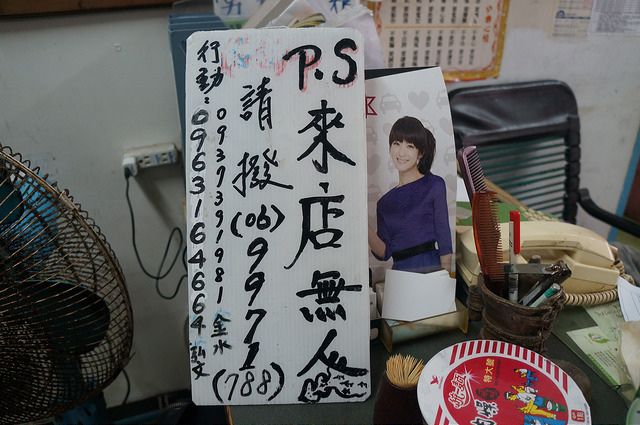 P.S 來店無人
請撥(06)9971(788)
0937391981 金水
行動:0963164664 文